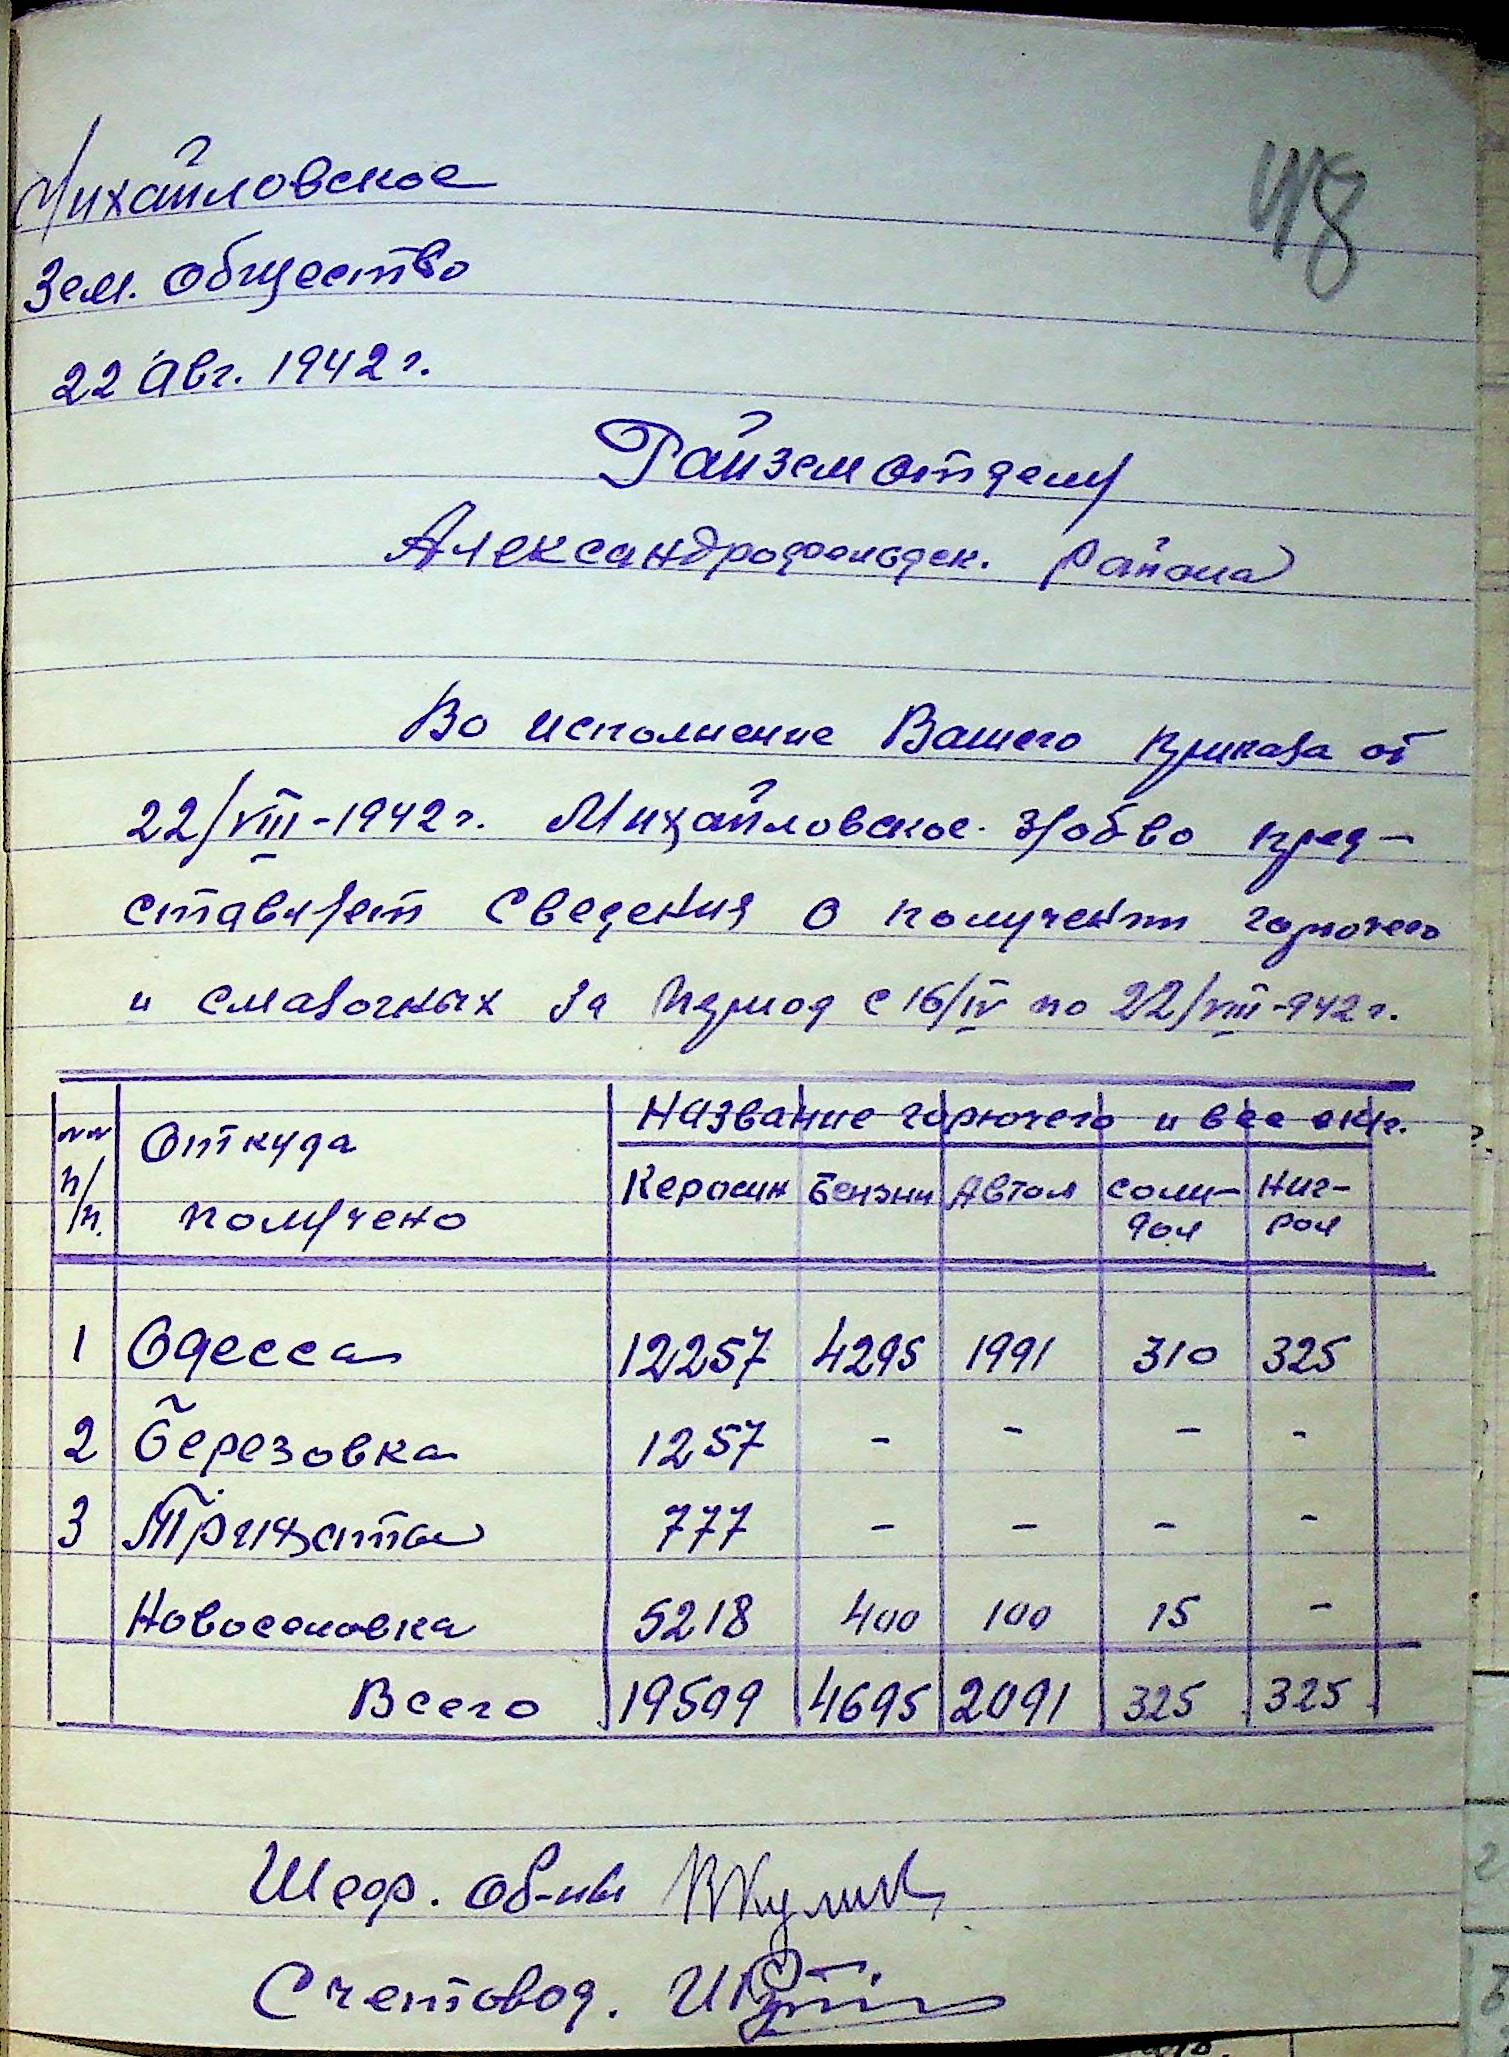 Михайловское
118
Зем. Общество
22 Авг. 1942 г.
Райземотделу
Александрофельдск. района
Во исполнение Вашего приказа от
22/VIII-1942 г. Михайловское з/об-во пред-
ставляет сведения о получении горючего
и смазочных за период с 16/IV по 22/VIII-942 г.
№№ п/п. Откуда получено Название горючего и вес в кг.
Керосин Бензин Автол Соли-дол Ниг-рол
1 Одесса 12257 4295 1991 310 325
2 Березовка 1257 - - - -
3 Трихаты 777 - - - -
Новоселовка 5218 400 100 15 -
Всего 19509 4695 2091 325 325
Шеф. об-ва
Счетовод.